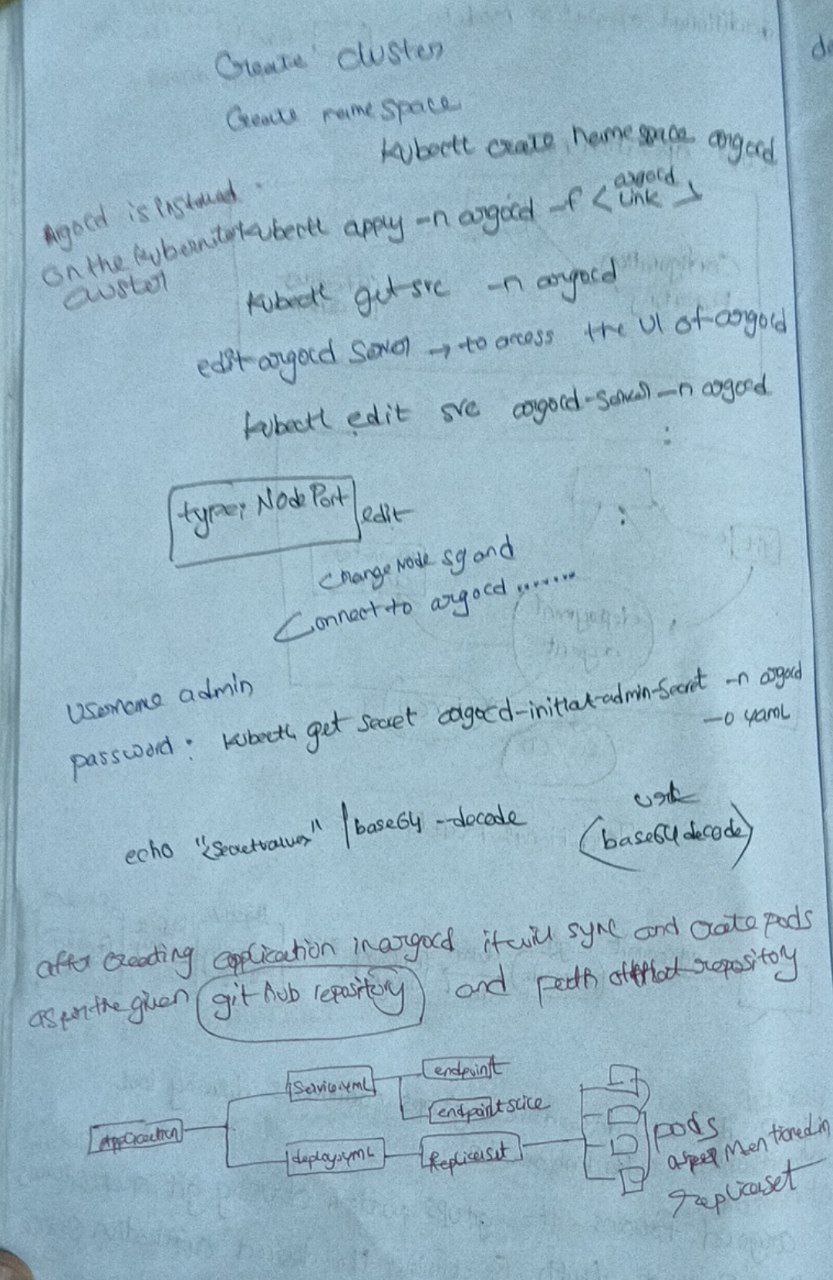 Create cluster
Create namespace
kubectl create namespace argocd
Argocd is Installed
on the kubernites
cluster
kubectl apply -n argocd -f < argocd Link >
kubectl get svc -n argocd
edit argocd server → to access the UI of argocd
kubectl edit svc argocd-server -n argocd
type: NodePort edit
Change Node sg and
Connect to argocd .......
Username admin
password: kubectl get secret argocd-initial-admin-secret -n argocd
-o yaml
echo "<secretvalues" | base64 --decode
(base64 decode)
after creating application in argocd it will sync and create pods
as per the given git hub repository and path of that repository
Application
Service.yml
endpoint
endpointslice
deploy.yml
Replicaset
pods
as per mentioned in
replicaset